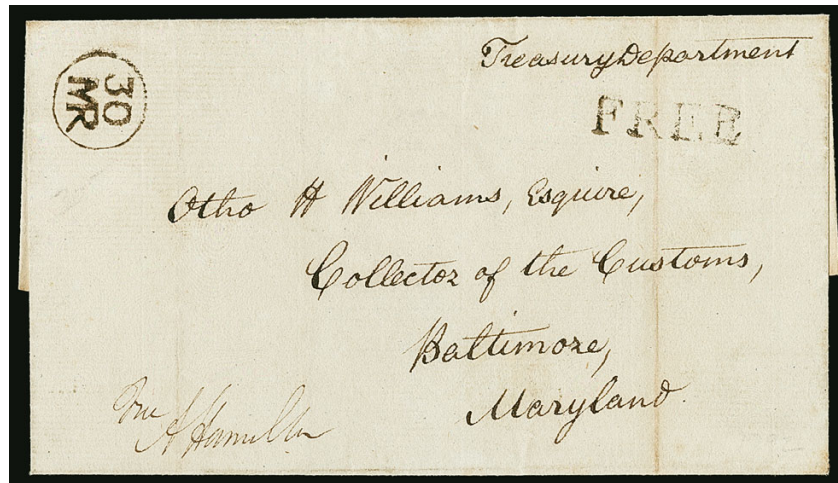 Treasury Department
30
MR
FREE
Otho H Williams, Esquire,
Collector of the Customs,
Baltimore,
Maryland.
A Hamilton